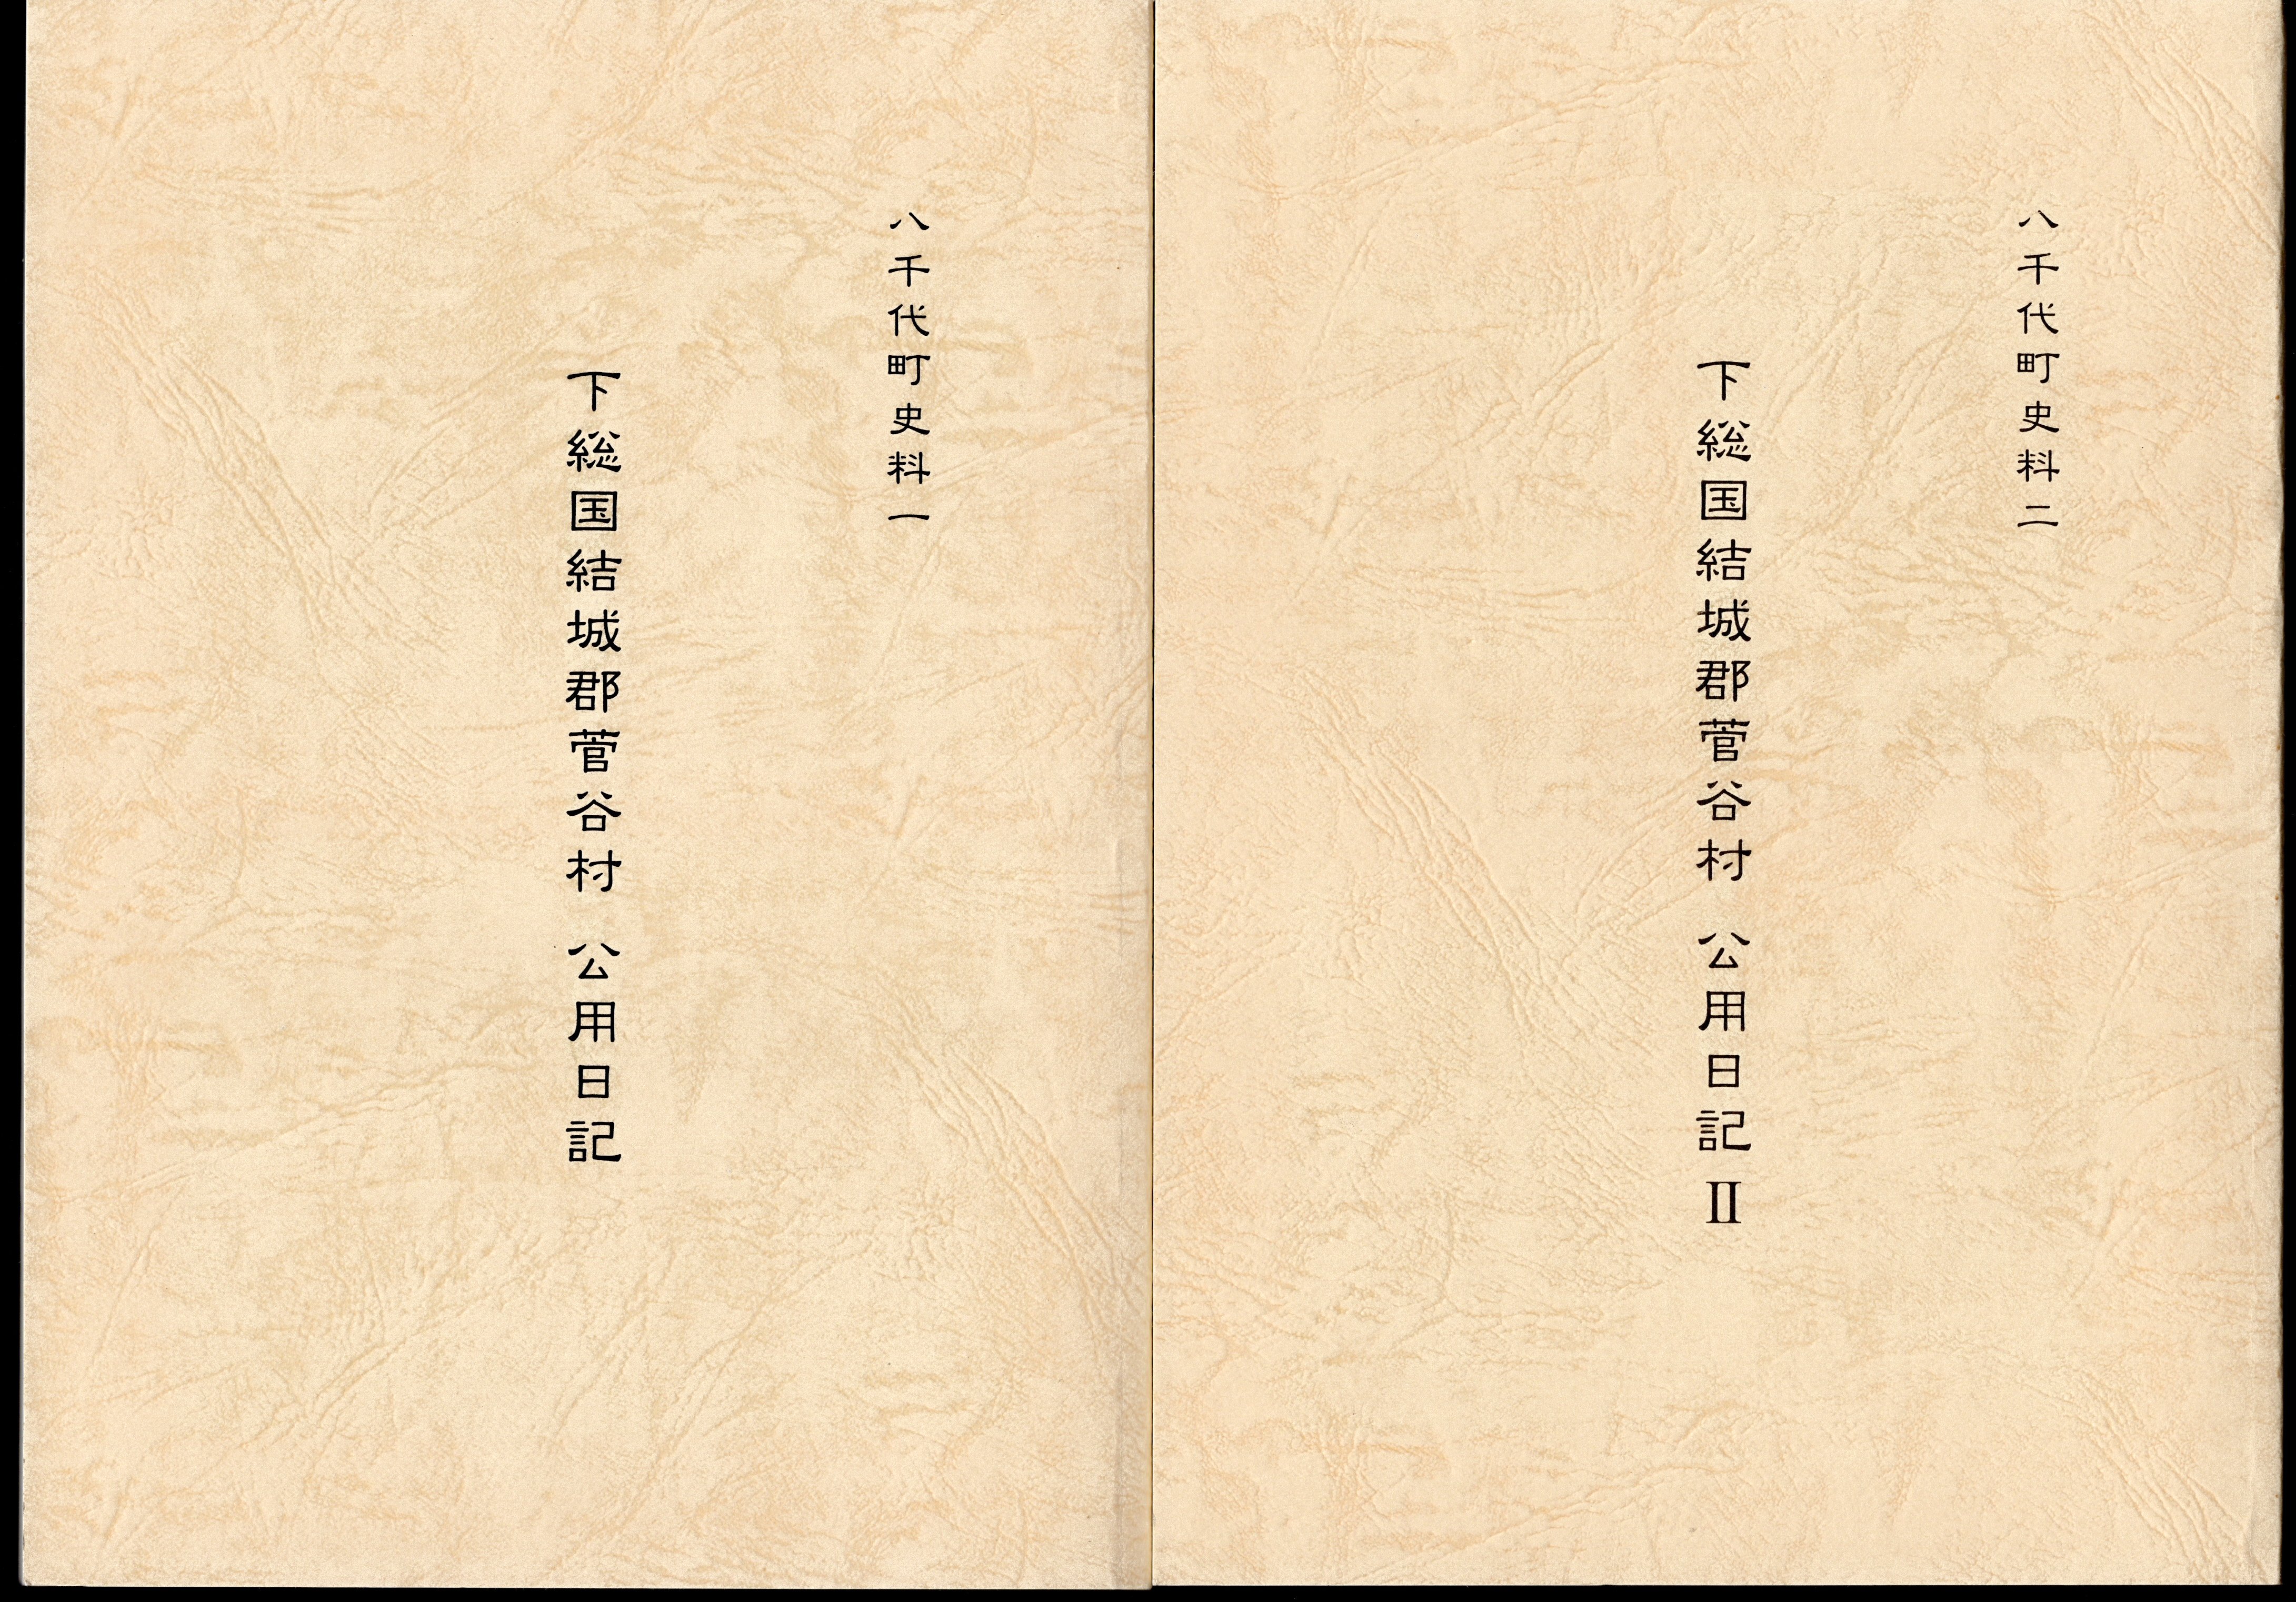 八千代町史料一
下総国結城郡菅谷村 公用日記
八千代町史料二
下総国結城郡菅谷村 公用日記 Ⅱ